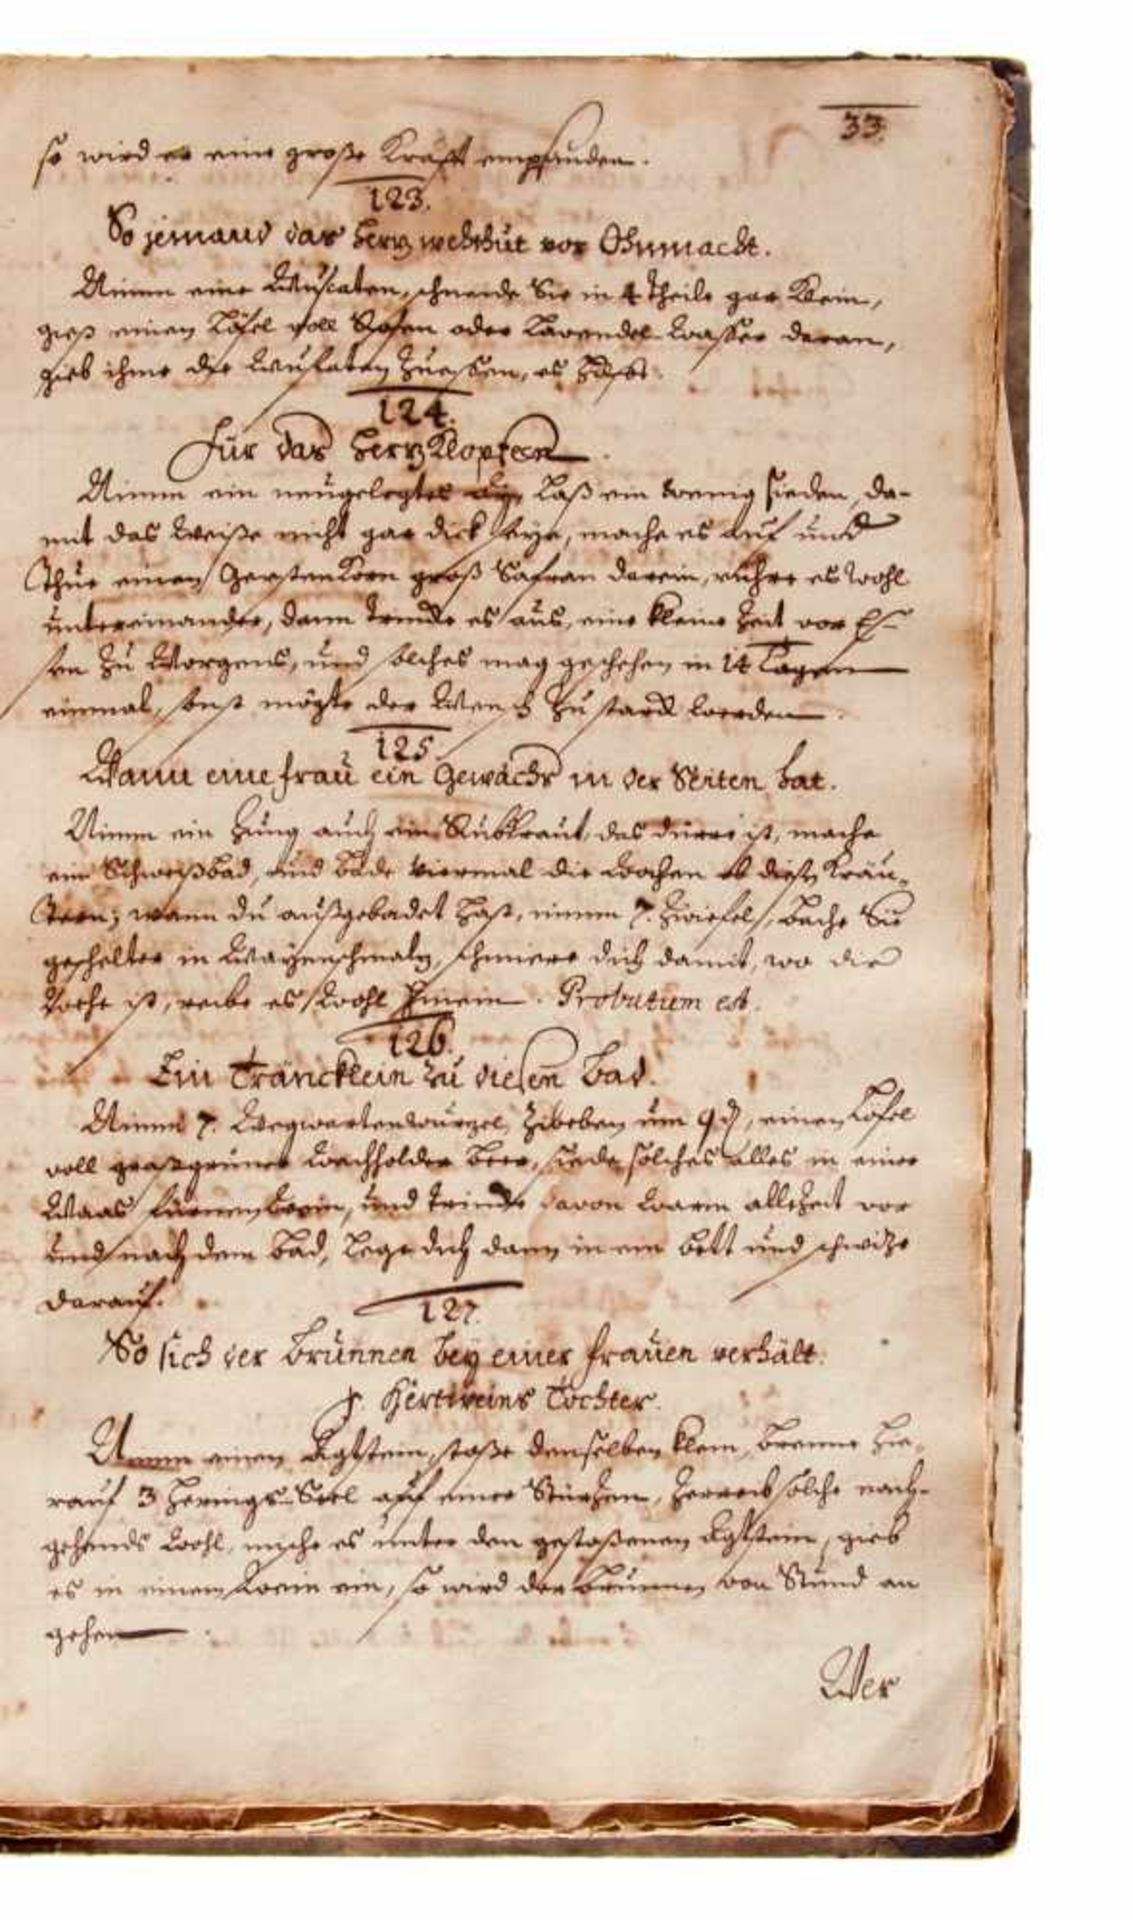 33.
so wird er eine große Krafft empfinden.
123.
So jemand das Herz wehthut vor Ohnmacht.
Nimm eine Muscaten, schneide Sie in 4 Theile gar klein,
gieß einen Löfel voll Rosen oder Lavendel-Wasser daran,
gieb ihme die Muscaten zu essen, es hilfft.
124.
Für das Herz Klopfen
Nimm ein neügelegtes Ay, laß ein wenig sieden, da-
mit das Weiße nicht gar dick seye, mache es auf und
Thue einen GerstenKorn groß Safran darein, rühre es wohl
untereinander, dann Trincke es aus, eine kleine Zeit vor Es-
sen zu Morgens, und solches mag geschehen in 14 Tagen
einmal, sonst mögte der Mensch zu starck werden.
125.
Wann eine frau ein Gewächs in der Seiten hat.
Nimm ein auch ein Rübkraut, das dürr ist, mache
ein Schweißbad, und bade Viermal die Wochen ob diesen Kräu-
Tern; wann du außgebadet hast, nimm 7. Zwiefel, bache Sie
geschelter in Mayenschmalz, schmiere dich damit, wo die
ist, reibe es Wohl hinein. Probatum est.
126.
Ein Träncklein zu diesen Bad.
Nimm 7. Wegwartenwurzel, Zibeben um 9 d, einen Löfel
voll graßgrüner Wachholder Beer, siede solches alles in einer
Maas Wein, und Trincke davon Warm allezeit vor
und nach dem Bad, Lege dich dann in ein Bett und schwitze
darauf.
127.
So sich der Brunnen bey einer frauen verhält.
Hertweins Tochter.
Nimm einen Agtstein, stoße denselben klein, brenne hie-
rauf 3 Herings-Seel auf einer Stürzen, zerreib solche nach-
gehends Wohl, mische es unter den gestoßenen Agtstein, gieb
es in einem Wein ein, so wird der Brunnen von Stund an
gehen
Wer